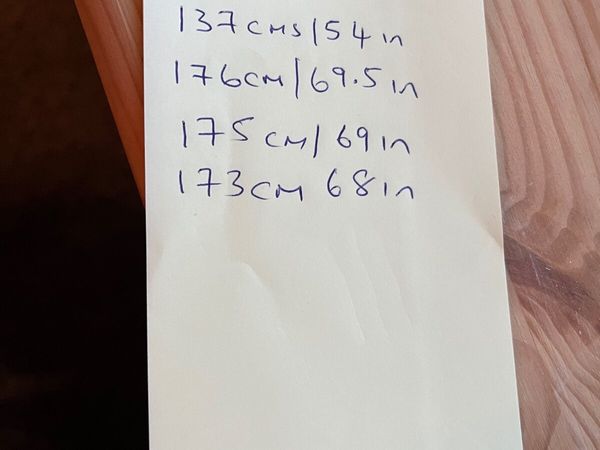 137cms/54in
176cm/69.5in
175cm/69in
173cm 68in